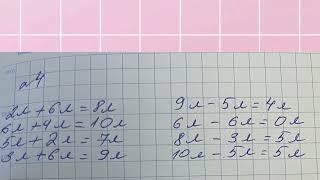 №4
2л + 6л = 8л
6л + 4л = 10л
5л + 2л = 7л
3л + 6л = 9л
9л - 5л = 4л
6л - 6л = 0л
8л - 3л = 5л
10л - 5л = 5л